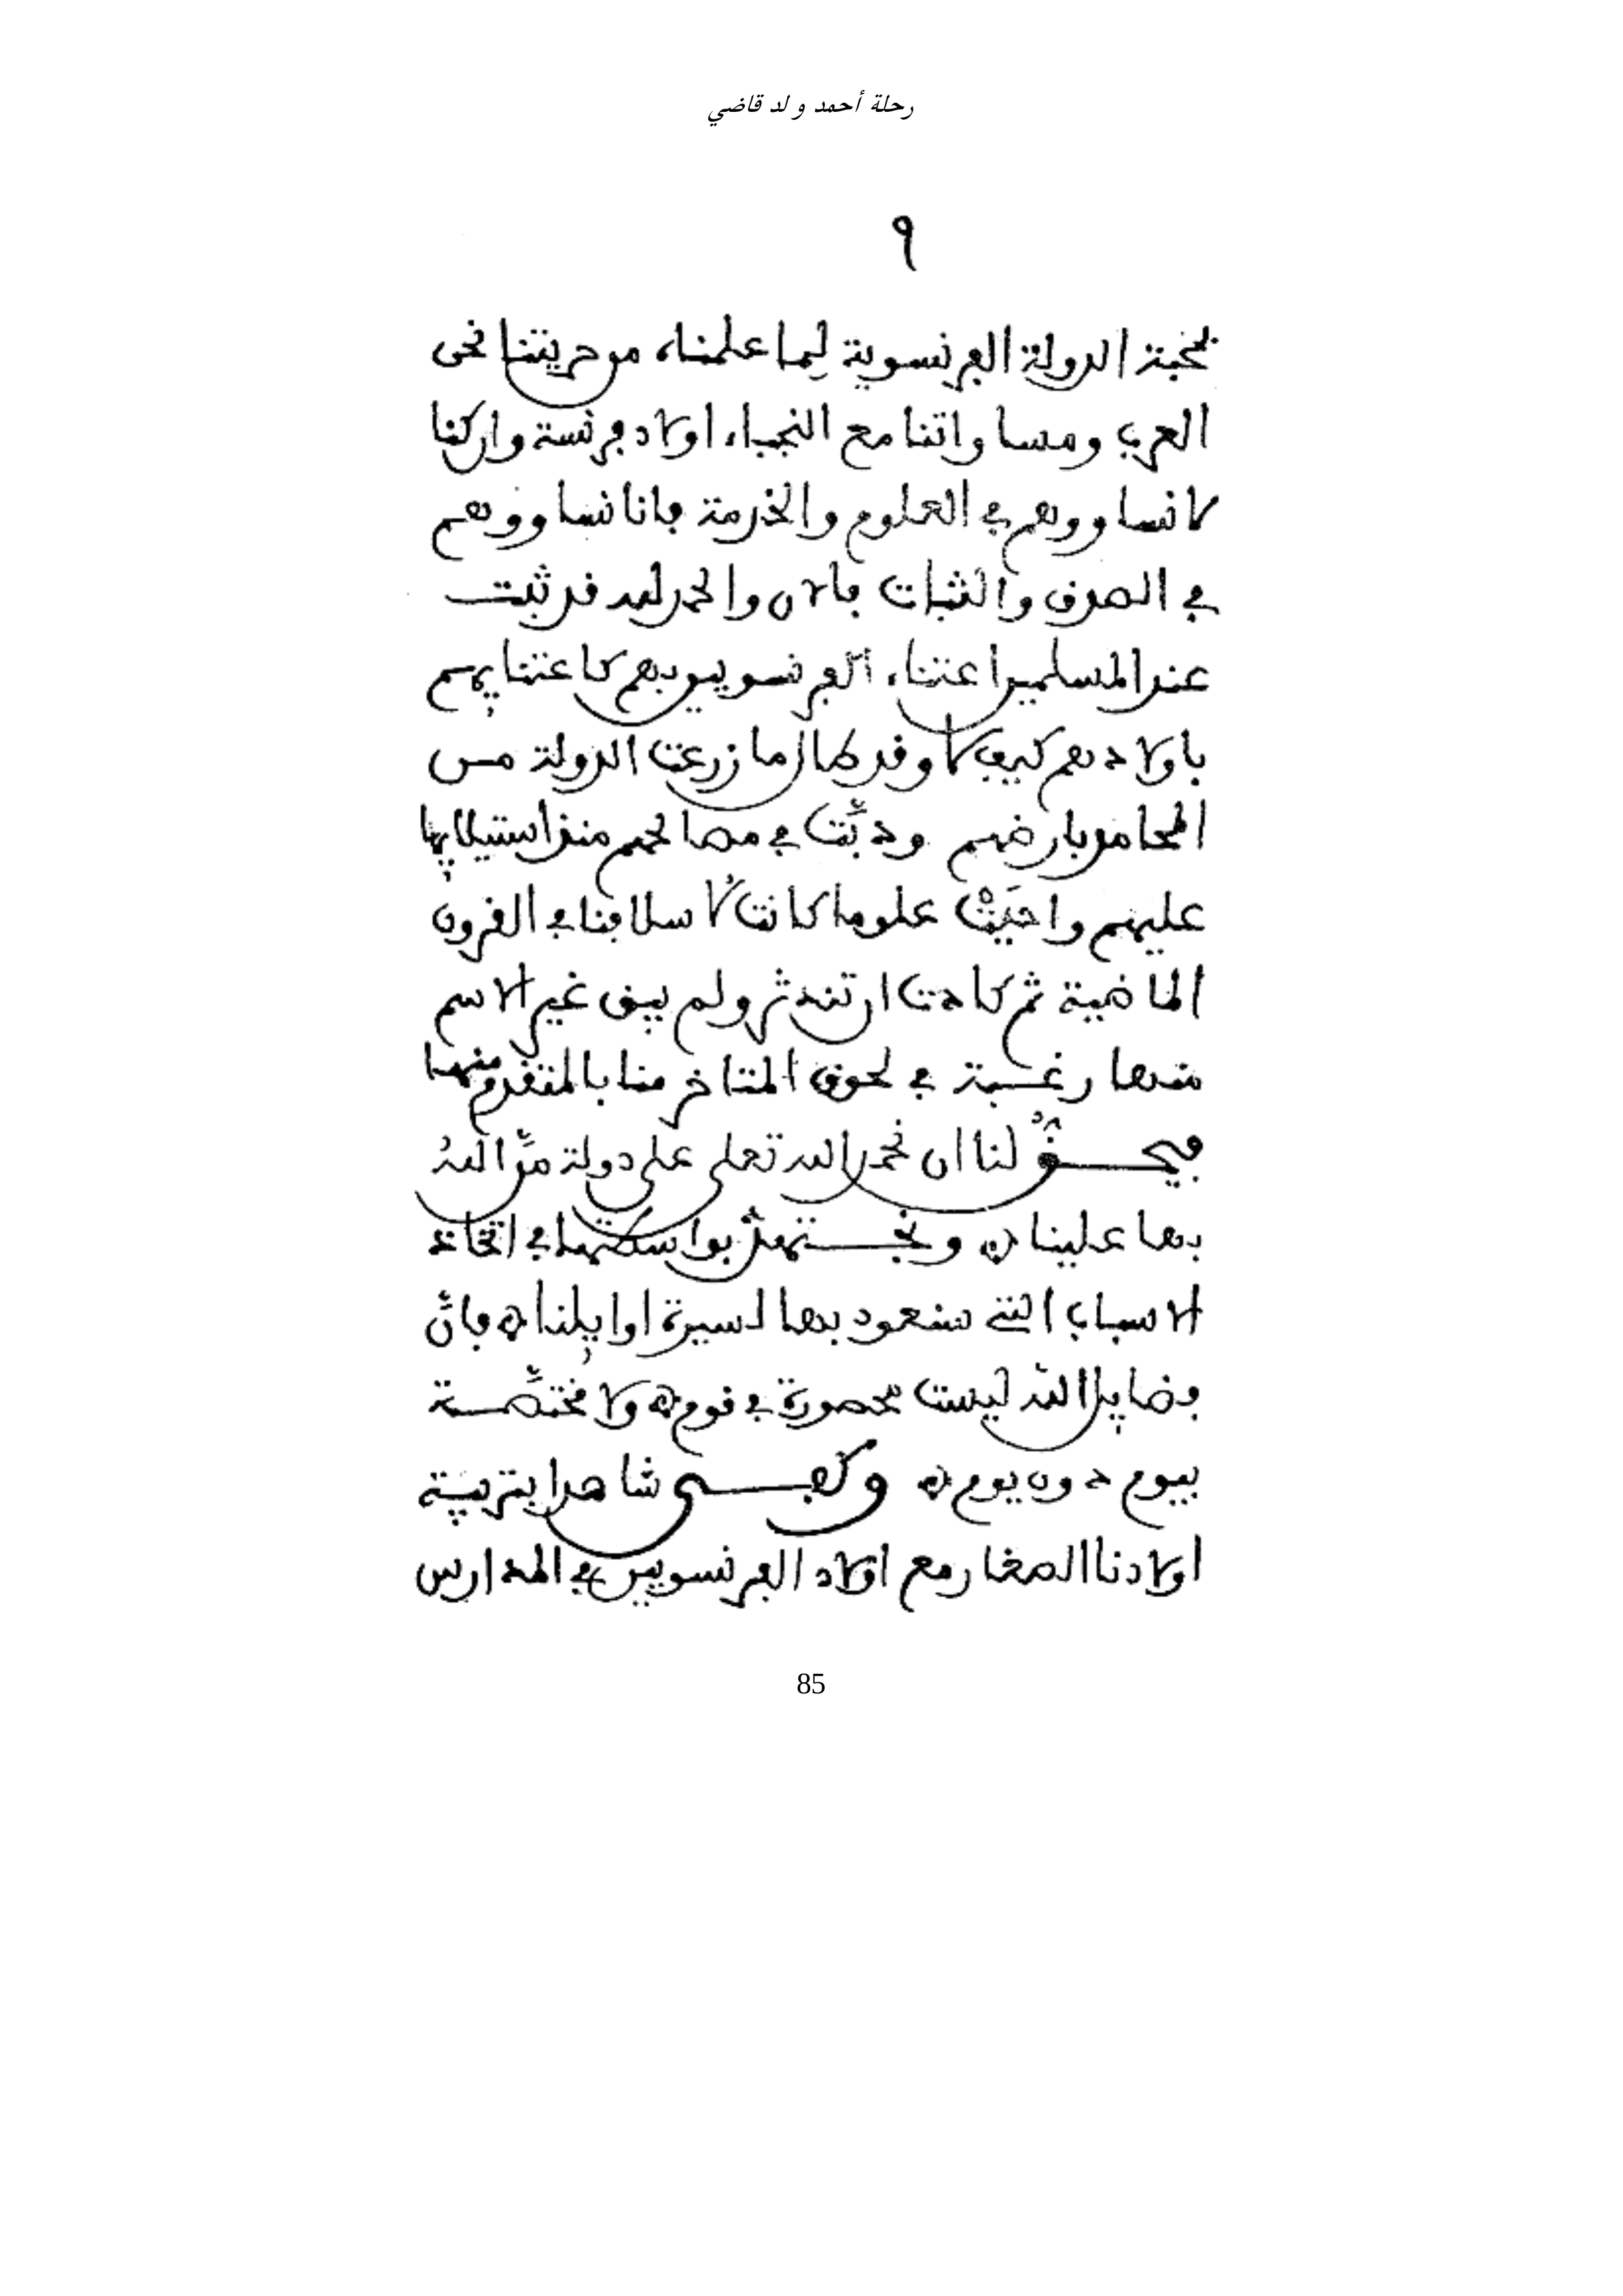 رحلة أحمد ولد قاضي
٩
بمحبة الدولة الفرنسوية لِما علمناه من حريتنا نحن
العرب ومساواتنا مع النجباء اولاد فرنسة وان كنا
لا نساووهم في العلوم والخدمة فاننا نساووهم
في الصدق والثبات فالان والحمد لله قد ثبت
عند المسلمين اعتناء الفرنسويين بهم كاعتنايهم
باولادهم كيف لا وقد طال ما زرعت الدولة من
المحامد بارضهم ودبَّت في مصالحهم منذ استيلايها
عليهم واحيَتْ علوما كانت لاسلافنا في القرون
الماضية ثم كادت ان تندثر ولم يبق غير الاسم
منها رغبة في لحوق المتاخر منا بالمتقدم منهما
فيحقُّ لنا ان نحمد الله تعلى على دولة منَّ اللهُ
بها علينا ونجتهدُ بواسطتها في اتخاذ
الاسباب التي سنعود بها لسيرة اوايلنا فانَّ
فضايل الله ليست محصورة في قوم ولا مختصَّة
بيوم دون يوم وكفى شاهدا بتربية
اولادنا الصغار مع اولاد الفرنسويين في المدارس
85